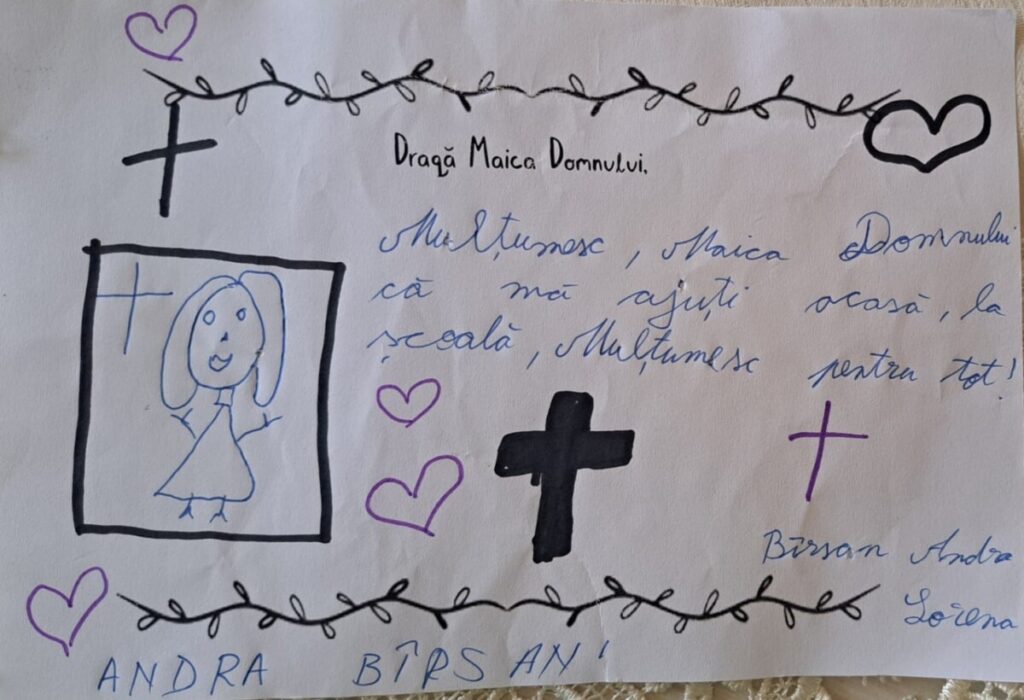 Dragă Maica Domnului,
Mulțumesc, Maica Domnului
că mă ajuți acasă, la
școală, Mulțumesc pentru tot!
Bîrsan Andra
Lorena
ANDRA BÎRSAN!